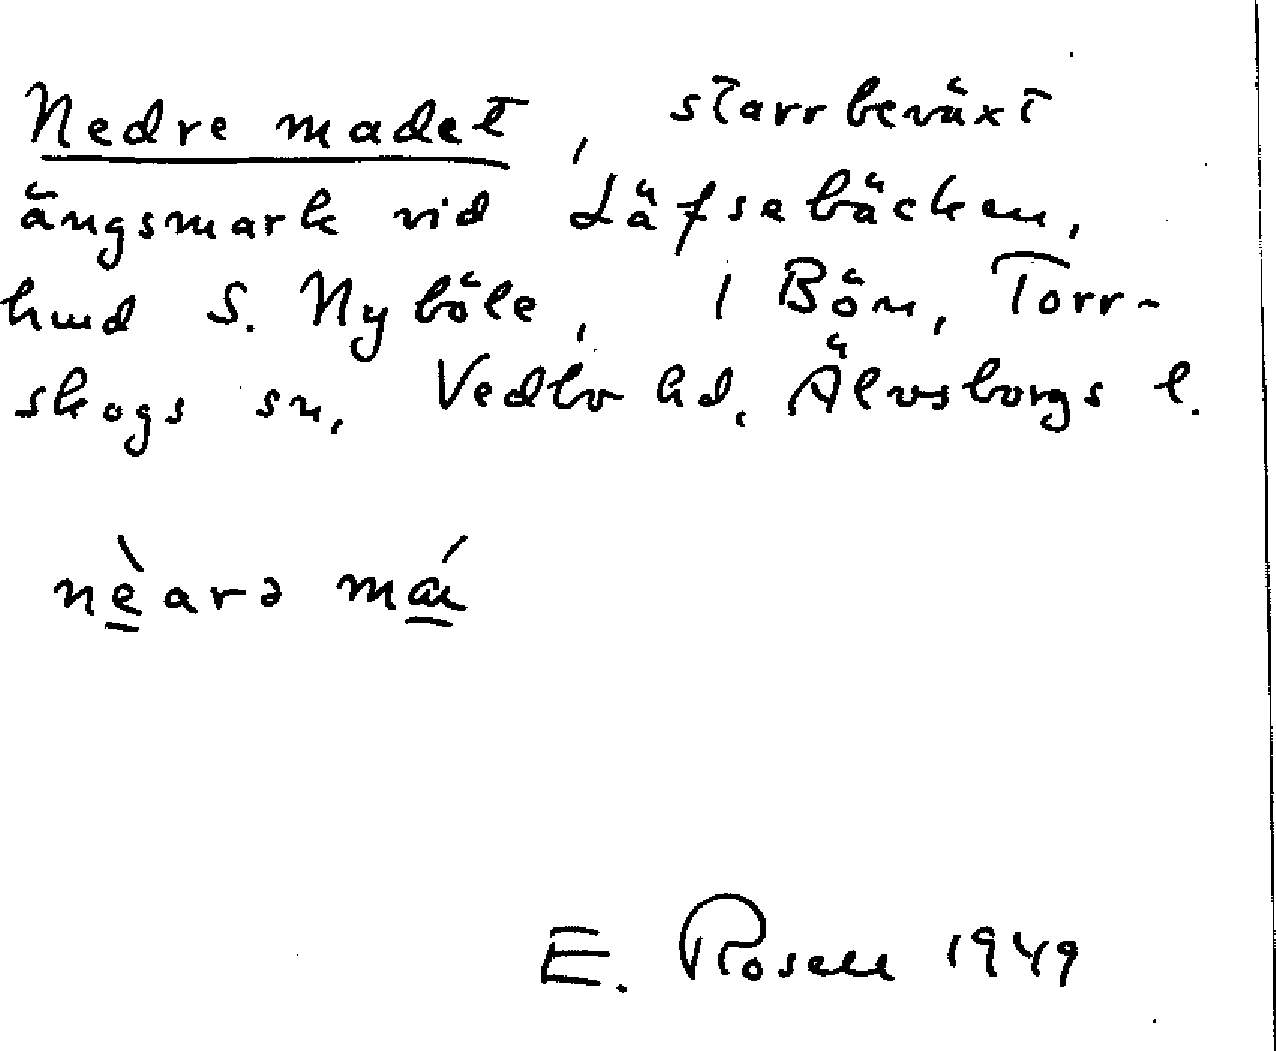 Nedre madet, starrbeväxt
ängsmark vid Läfsebäcken,
hmd S. Nyböle, 1 Bön, Torr-
skogs sn, Vedbo hd, Älvsborgs l.
nèarə mái
E. Rosell 1949